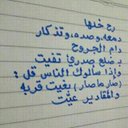 رح خلها
دمعه وصده وتذكار
دام الجروح
بضلع صدري تفيت
وإذا سألوك الناس قل :
(صار ماصار) بغيت قربه
والمقادير عيّت